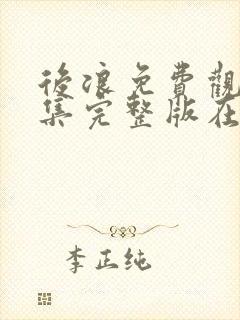 後浪免費觀
集完整版在
李正纯